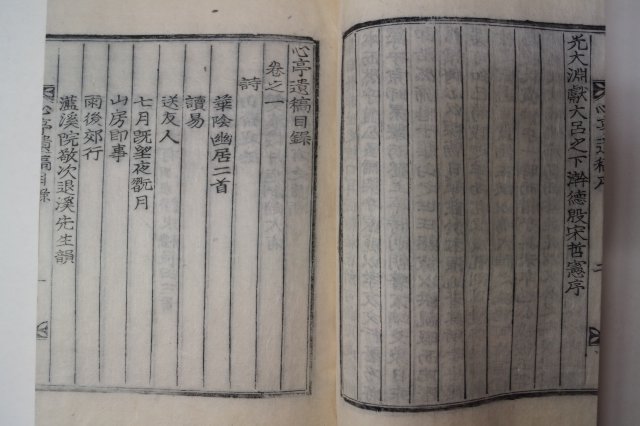 光大淵獻大呂之下澣德殷宋哲憲序
心亭遺稿序
二
心亭遺稿目錄
卷之一
詩
華陰幽居二首
讀易
送友人
七月旣望夜翫月
山房卽事
雨後郊行
蘆溪院敬次退溪先生韻
心亭遺稿目錄
一